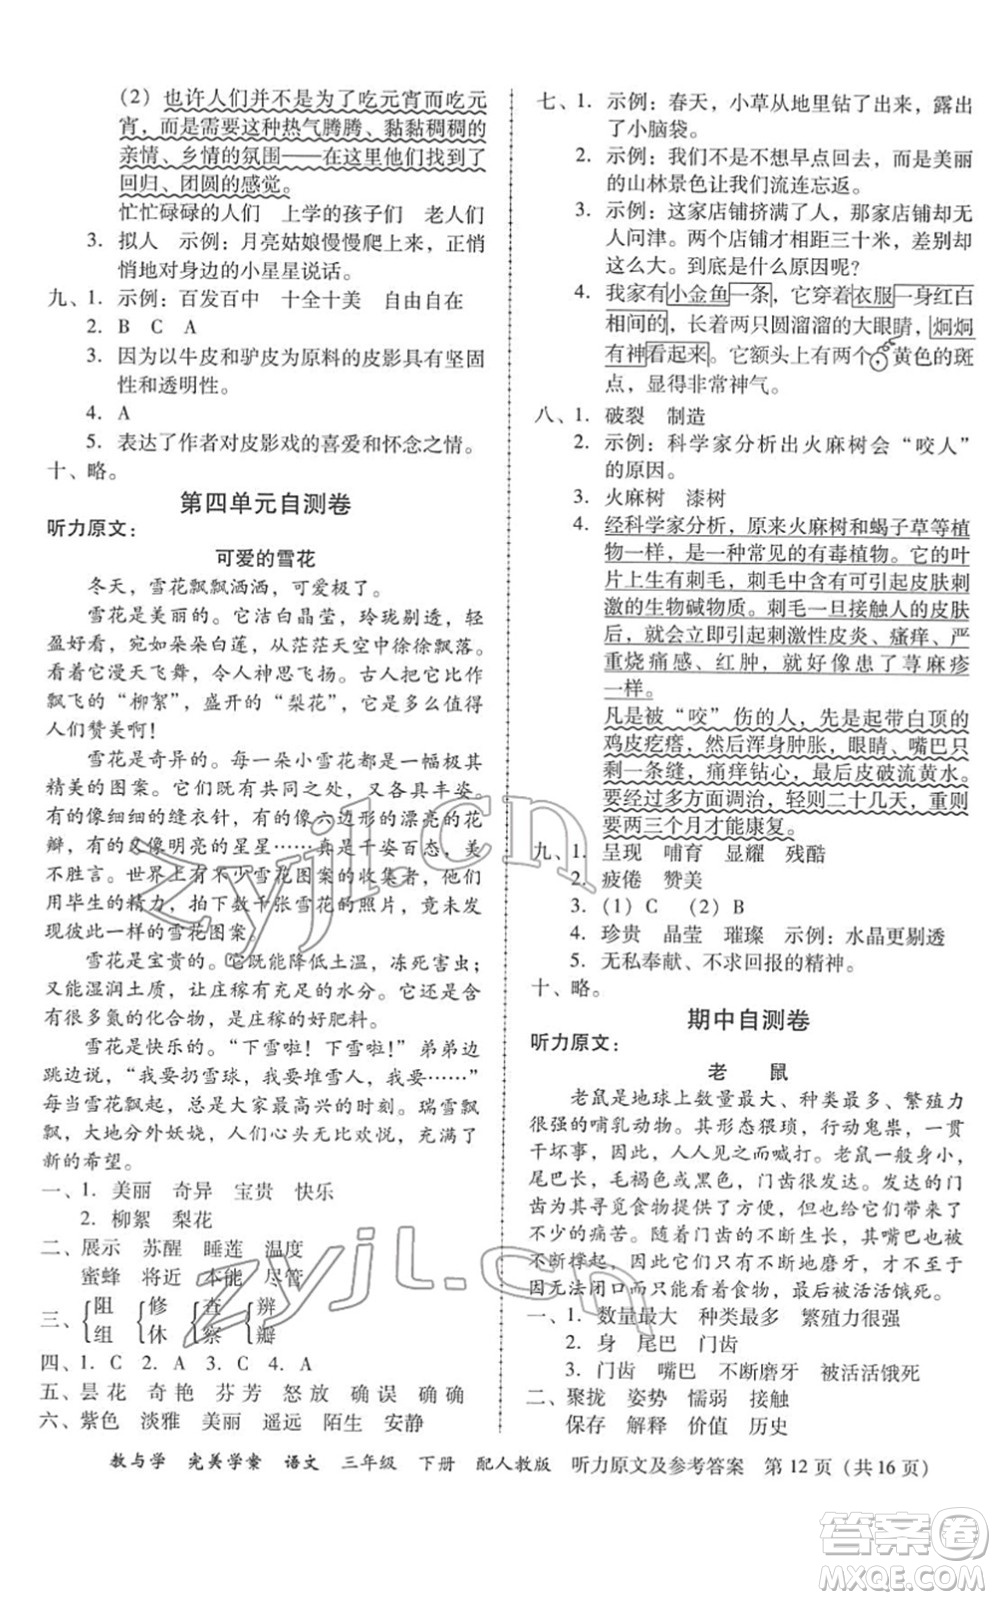 (2) 也许人们并不是为了吃元宵而吃元
宵,而是需要这种热气腾腾、黏黏稠稠的
亲情、乡情的氛围——在这里他们找到了
回归、团圆的感觉。
忙忙碌碌的人们 上学的孩子们 老人们
3. 拟人 示例:月亮姑娘慢慢爬上来,正悄
悄地对身边的小星星说话。
九、1. 示例:百发百中 十全十美 自由自在
2. B C A
3. 因为以牛皮和驴皮为原料的皮影具有坚固
性和透明性。
4. A
5. 表达了作者对皮影戏的喜爱和怀念之情。
十、略。
第四单元自测卷
听力原文:
可爱的雪花
冬天,雪花飘飘洒洒,可爱极了。
雪花是美丽的。它洁白晶莹,玲珑剔透,轻
盈好看,宛如朵朵白莲,从茫茫天空中徐徐飘落。
看着它漫天飞舞,叫人神思飞扬。它像轻柔的
飘飞的“柳絮”,盛开的“梨花”,它是多么值得
人们赞美啊!
雪花是奇异的。每一朵小雪花都是一幅极其
精美的图案。它们既有共同之处,又各具丰姿。
有的像细细的缝衣针,有的像六边形的漂亮的花
瓣,有的又像明亮的星星……真是千姿百态,美
不胜言。世界上有不少雪花图案的收集者,他们
用毕生的精力,拍下数千张雪花的照片,竟未发
现彼此一样的雪花图案。
雪花是宝贵的。它既能降低土温,冻死害虫;
又能湿润土质,让庄稼有充足的水分。它还含有
很多氮的化合物,是庄稼的好肥料。
雪花是快乐的。“下雪啦!下雪啦!”弟弟边
跳边说,“我要扔雪球,我要堆雪人,我要……”
每当雪花飘起,都是大家最高兴的时刻。瑞雪飘
飘,大地分外妖娆,人们心头无比欢悦,充满了
新的希望。
一、1. 美丽 奇异 宝贵 快乐
2. 柳絮 梨花
二、展示 苏醒 睡莲 温度
蜜蜂 将近 本能 尽管
三、{阻 组 {修 休 {查 察 {辨 瓣
四、1. C 2. A 3. C 4. A
五、昙花 奇艳 芬芳 怒放 确误 确确
六、紫色 淡雅 美丽 遥远 陌生 安静
七、1. 示例:春天,小草从地里钻了出来,露出
了小脑袋。
2. 示例:我们不是不想早点回去,而是美丽
的山林景色让我们流连忘返。
3. 示例:这家店铺挤满了人,那家店铺却无
人问津。两个店铺才相距三十米,差别却这
么大。到底是什么原因呢?
4. 我家有小金鱼一条,它穿着衣服一身红白
相间的,长着两只圆溜溜的大眼睛,炯炯
有神看起来。它额头上有两个黄色的斑
点,显得非常神气。
八、1. 破裂 制造
2. 示例:科学家分析出火麻树会“咬人”
的原因。
3. 火麻树 漆树
4. 经科学家分析,原来火麻树和蝎子草等植
物一样,是一种常见的有毒植物。它的叶
片上生有刺毛,刺毛中含有可引起皮肤刺
激的生物碱物质。刺毛一旦接触人的皮肤
后,就会立即引起刺激性皮炎、瘙痒、严
重烧痛感、红肿,就好像患了荨麻疹
一样。
凡是被“咬”伤的人,先是起带白顶的
鸡皮疙瘩,然后浑身肿胀,眼睛、嘴巴只
剩一条缝,痛痒钻心,最后皮破流黄水。
要经过多方面调治,轻则二十几天,重则
要两三个月才能康复。
九、1. 呈现 哺育 显耀 残酷
2. 疲倦 赞美
3. (1) C (2) B
4. 珍贵 晶莹 璀璨 示例:水晶更剔透
5. 无私奉献、不求回报的精神。
十、略。
期中自测卷
听力原文:
老 鼠
老鼠是地球上数量最大、种类最多、繁殖力
很强的哺乳动物。其形态猥琐,行动鬼祟,一贯
干坏事,因此,人人见之而喊打。老鼠一般身小,
尾巴长,毛褐色或黑色,门齿很发达。发达的门
齿为老鼠的进食提供了方便,但也给它们带来了
不少的痛苦。随着门齿的不断生长,它们的嘴巴不
断撑起,因此它们需要不断地磨牙,不然就会
因无法闭口而只能看着食物,被活活饿死。
一、1. 数量最大 种类最多 繁殖力很强
2. 身 尾巴 门齿
3. 门齿 嘴巴 不断磨牙 被活活饿死
二、聚拢 姿势 懦弱 接触
保存 解释 价值 历史
教与学 完美学案 语文 三年级 下册 配人教版 听力原文及参考答案 第12页(共16页)
zyjl.cn
zyjl.cn
答案卷
MXQE.COM